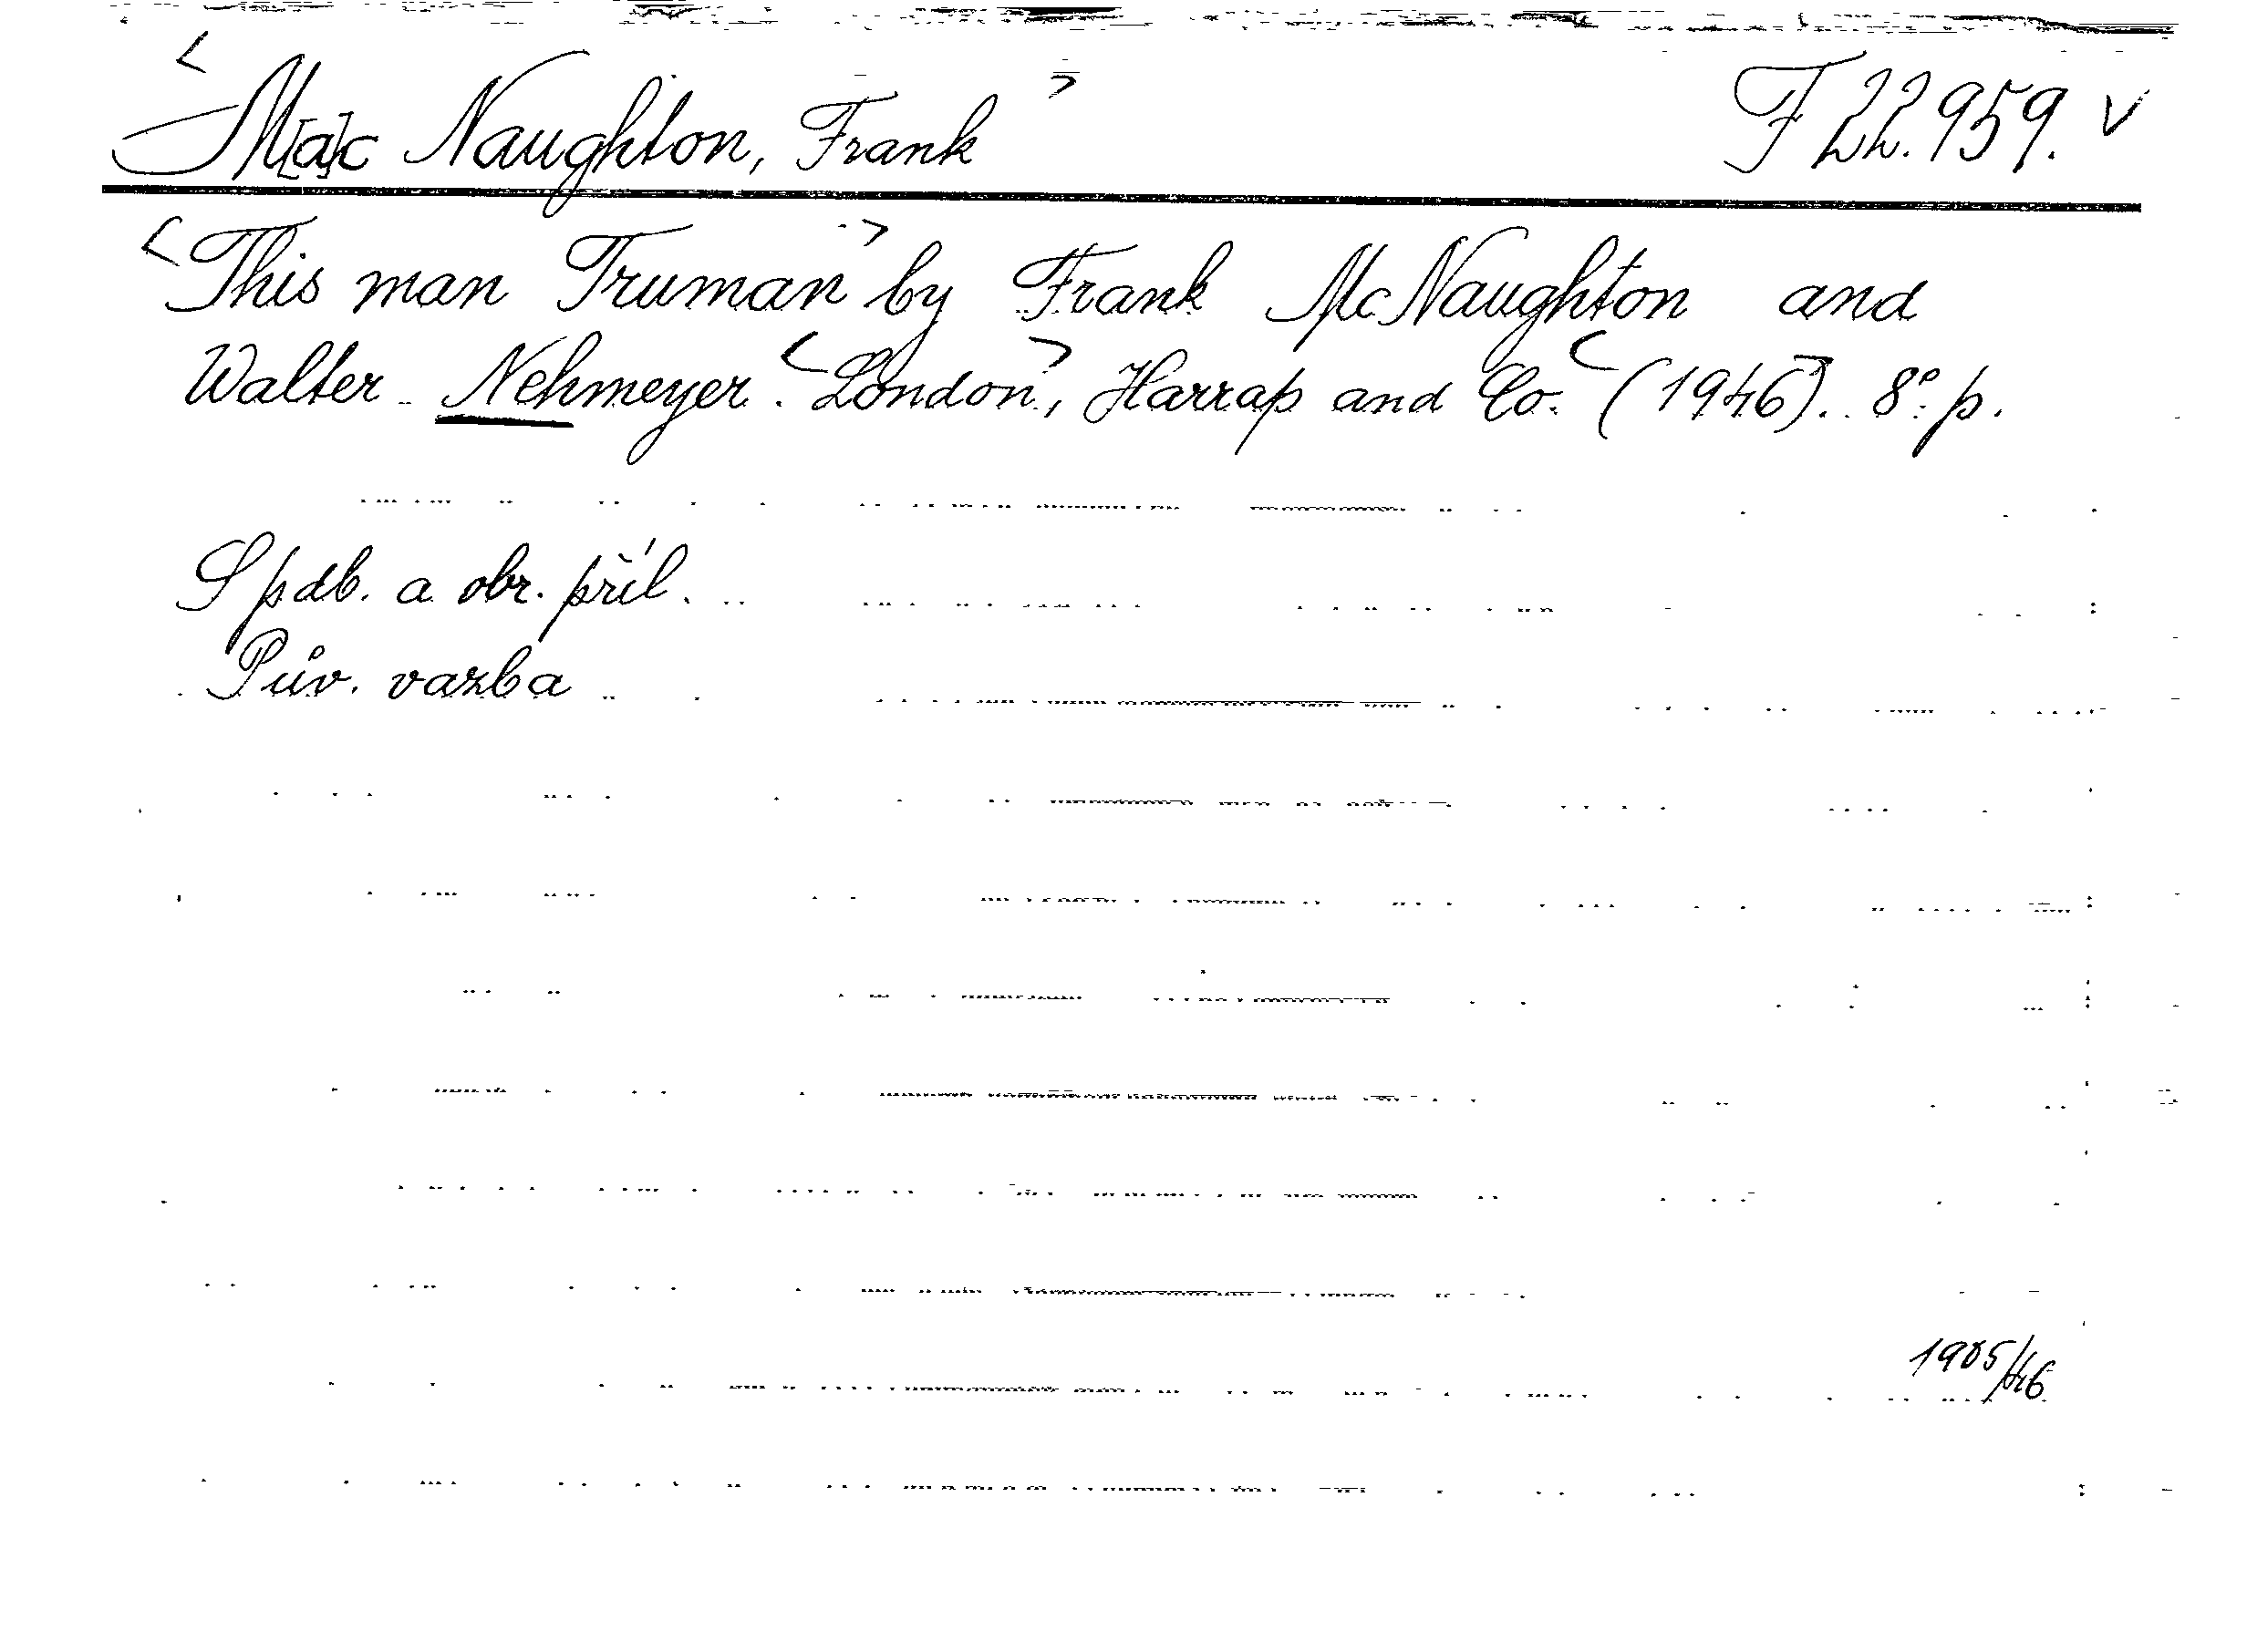 <M[a]c Naughton, Frank> F 22.959. v
<This man Truman> by Frank McNaughton and
Walter Nehmeyer. <London>, Harrap and Co. <(1946)>. 8° p.
S pdb. a obr. příl.
Pův. vazba
1985/46